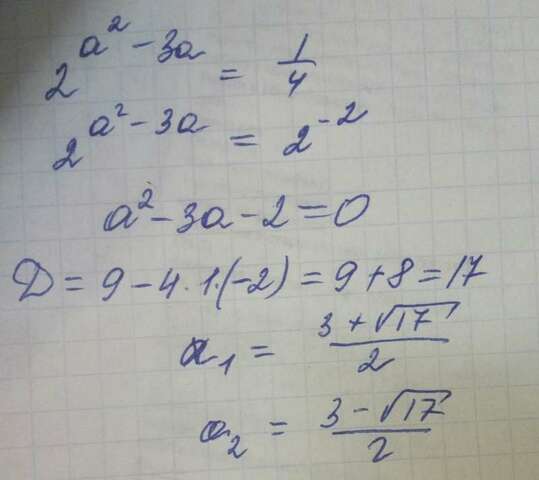 2^{a^2 - 3a} = \frac{1}{4}
2^{a^2 - 3a} = 2^{-2}
a^2 - 3a - 2 = 0
D = 9 - 4 \cdot 1 \cdot (-2) = 9 + 8 = 17
a_1 = \frac{3 + \sqrt{17}}{2}
a_2 = \frac{3 - \sqrt{17}}{2}